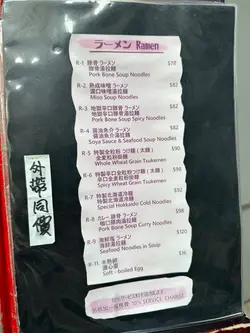 ラーメン Ramen
R-1 豚骨 ラーメン
豬骨湯拉麵
Pork Bone Soup Noodles
$78
R-2 熟成味噌 ラーメン
濃口味噌湯拉麵
Miso Soup Noodles
$82
R-3 地獄辛口豚骨 ラーメン
地獄辛口豬骨湯拉麵
Pork Bone Soup Spicy Noodles
$82
R-4 醤油魚介 ラーメン
醬油魚介湯拉麵
Soya Sauce & Seafood Soup Noodles
$82
R-5 特製全粒粉 つけ麺 ( 太麺 )
全麥粒粉拙麵
Whole Wheat Grain Tsukemen
$90
R-6 特製辛口全粒粉つけ麺 ( 太麺 )
辛口全麥粒粉
Spicy Whole Wheat Grain Tsukemen
R-7 特製北海道冷麺
特製北海道冷麵
Special Hokkaido Cold Noodles
$92
R-8 カレー 豚骨 ラーメン
咖喱豬肉湯拉麵
Pork Bone Soup Curry Noodles
$90
R-9 海鮮塩 ラーメン
海鮮湯拉麵
Seafood Noodles in Soup
$16
溏心蛋
Soft - boiled Egg
10% SERVICE CHARGE
外賣同價